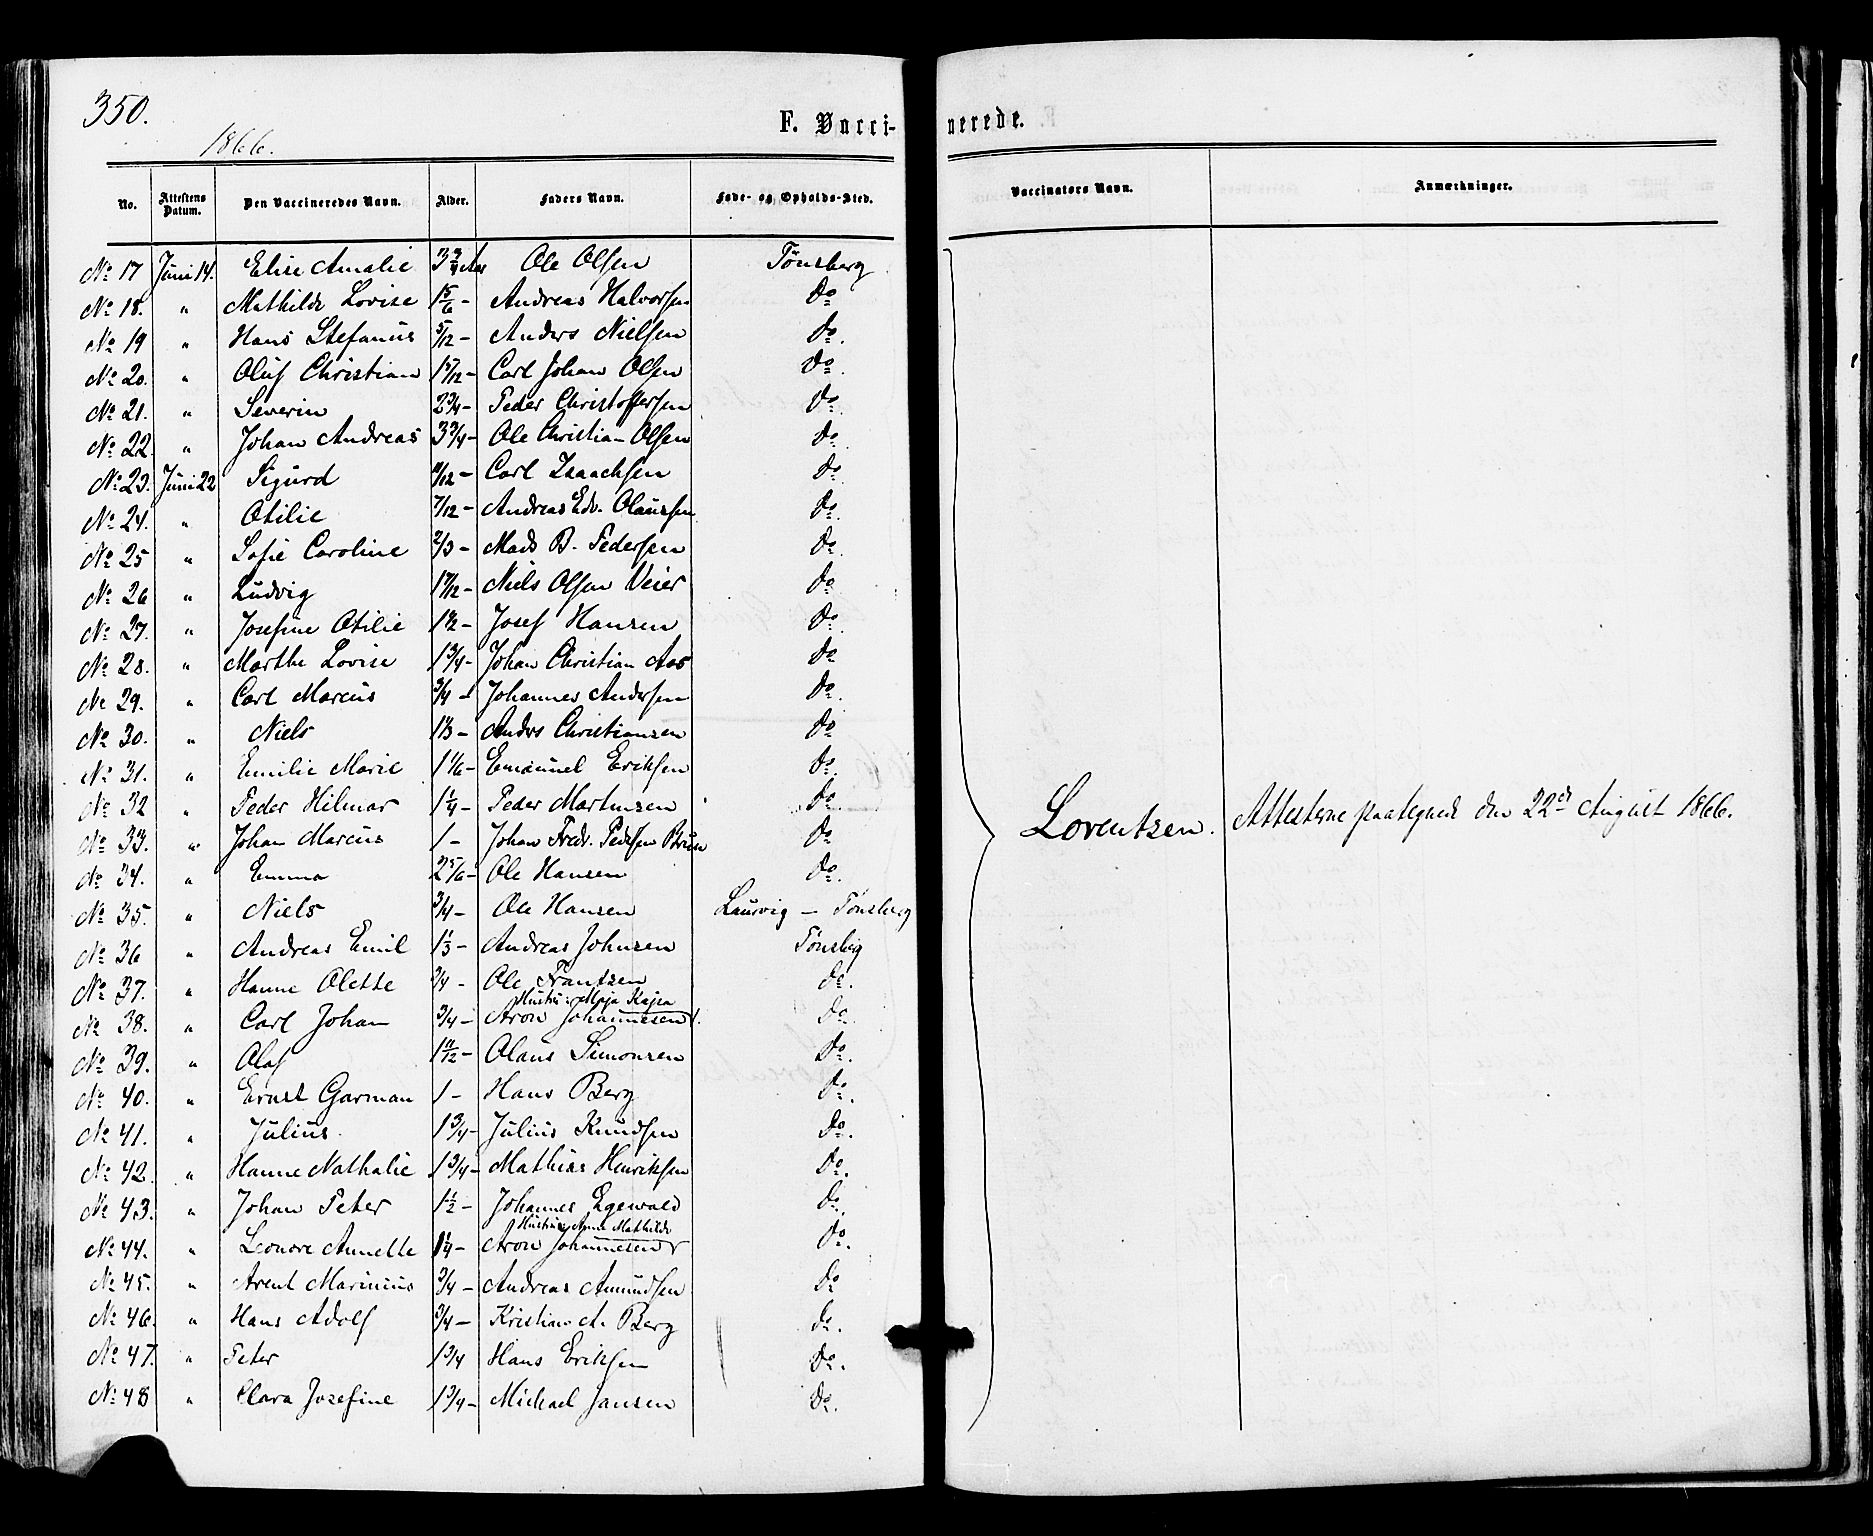 350.
1866.
F. Vaccinerede.
No. Attestens Datum. Den Vaccineredes Navn. Alder. Faders Navn. Føde- og Opholds-Sted. Vaccinators Navn. Anmærkninger.
No 17 Juni 14. Elise Amalie 3 3/4 Aar Ole Olsen Tønsberg
No 18. " Mathilde Lovise 1 5/6 - Andreas Halvorsen Do
No 19 " Hans Stefanus 5/12 - Anders Nielsen Do.
No 20. " Oluf Christian 1 5/12 - Carl Johan Olsen Do.
No 21. " Severin 2 3/4 - Peder Christoffersen Do
No 22. " Johan Andreas 3 3/4 - Ole Christian Olsen Do
No 23. Juni 22 Sigurd 11/12 - Carl Isaachsen Do
No 24. " Otilie 7/12 - Andreas Edv. Olaussen Do.
No 25 " Sofie Caroline 2/3 - Mads B. Pedersen Do.
No 26 " Ludvig 1 7/12 - Niels Olsen Veier Do
No 27. " Josefine Otilie 1 1/2 - Josef Hansen Do.
No 28. " Marthe Lovise 1 3/4 - Johan Christian Aas Do
No 29. " Carl Marcus 3/4 - Johannes Andersen Do.
No 30. " Niels 1 1/3 - Anders Christiansen Do
No 31. " Emilie Marie 1 1/6 - Emanuel Eriksen Do.
No 32 " Peder Hilmar 1 1/4 - Peder Martinsen Do.
No 33. " Johan Marcus 1 - Johan Fredr. Pedersen Bruun Do
No 34. " Emma 2 5/6 - Ole Hansen Do.
No 35. " Niels 3/4 - Ole Hansen Laurvig - Tønsberg
No 36 " Andreas Emil 1 1/3 - Andreas Johnsen Tønsbg
No 37. " Hanne Olette 3/4 - Ole Frantzen do.
Hustru: Maja Kajsa
No 38. " Carl Johan 3/4 - Aron Johannesen Do.
No 39. " Olaf 1 11/12 - Olaus Simonsen Do.
No 40. " Ernst Garman 1 - Hans Berg Do.
No 41. " Julius. 1 3/4 - Julius Knudsen Do.
No 42. " Hanne Nathalie 1 3/4 - Mathias Henriksen Do.
No 43. " Johan Peter 1 1/2 - Johannes Egewald Do.
Hustru: Anne Mathilde
No 44. " Leonore Annette 1 1/4 - Aron Johannesen Do.
No 45. " Arent Marinius 3/4 - Andreas Amundsen Do
No 46. " Hans Adolf 3/4 - Kristian A. Berg do.
No 47. " Peter 1 3/4 Hans Eriksen Do.
No 48 " Clara Josefine 1 3/4 - Michael Jansen Do.
Lorentzen. Attesterne paategnede den 22de August 1866.